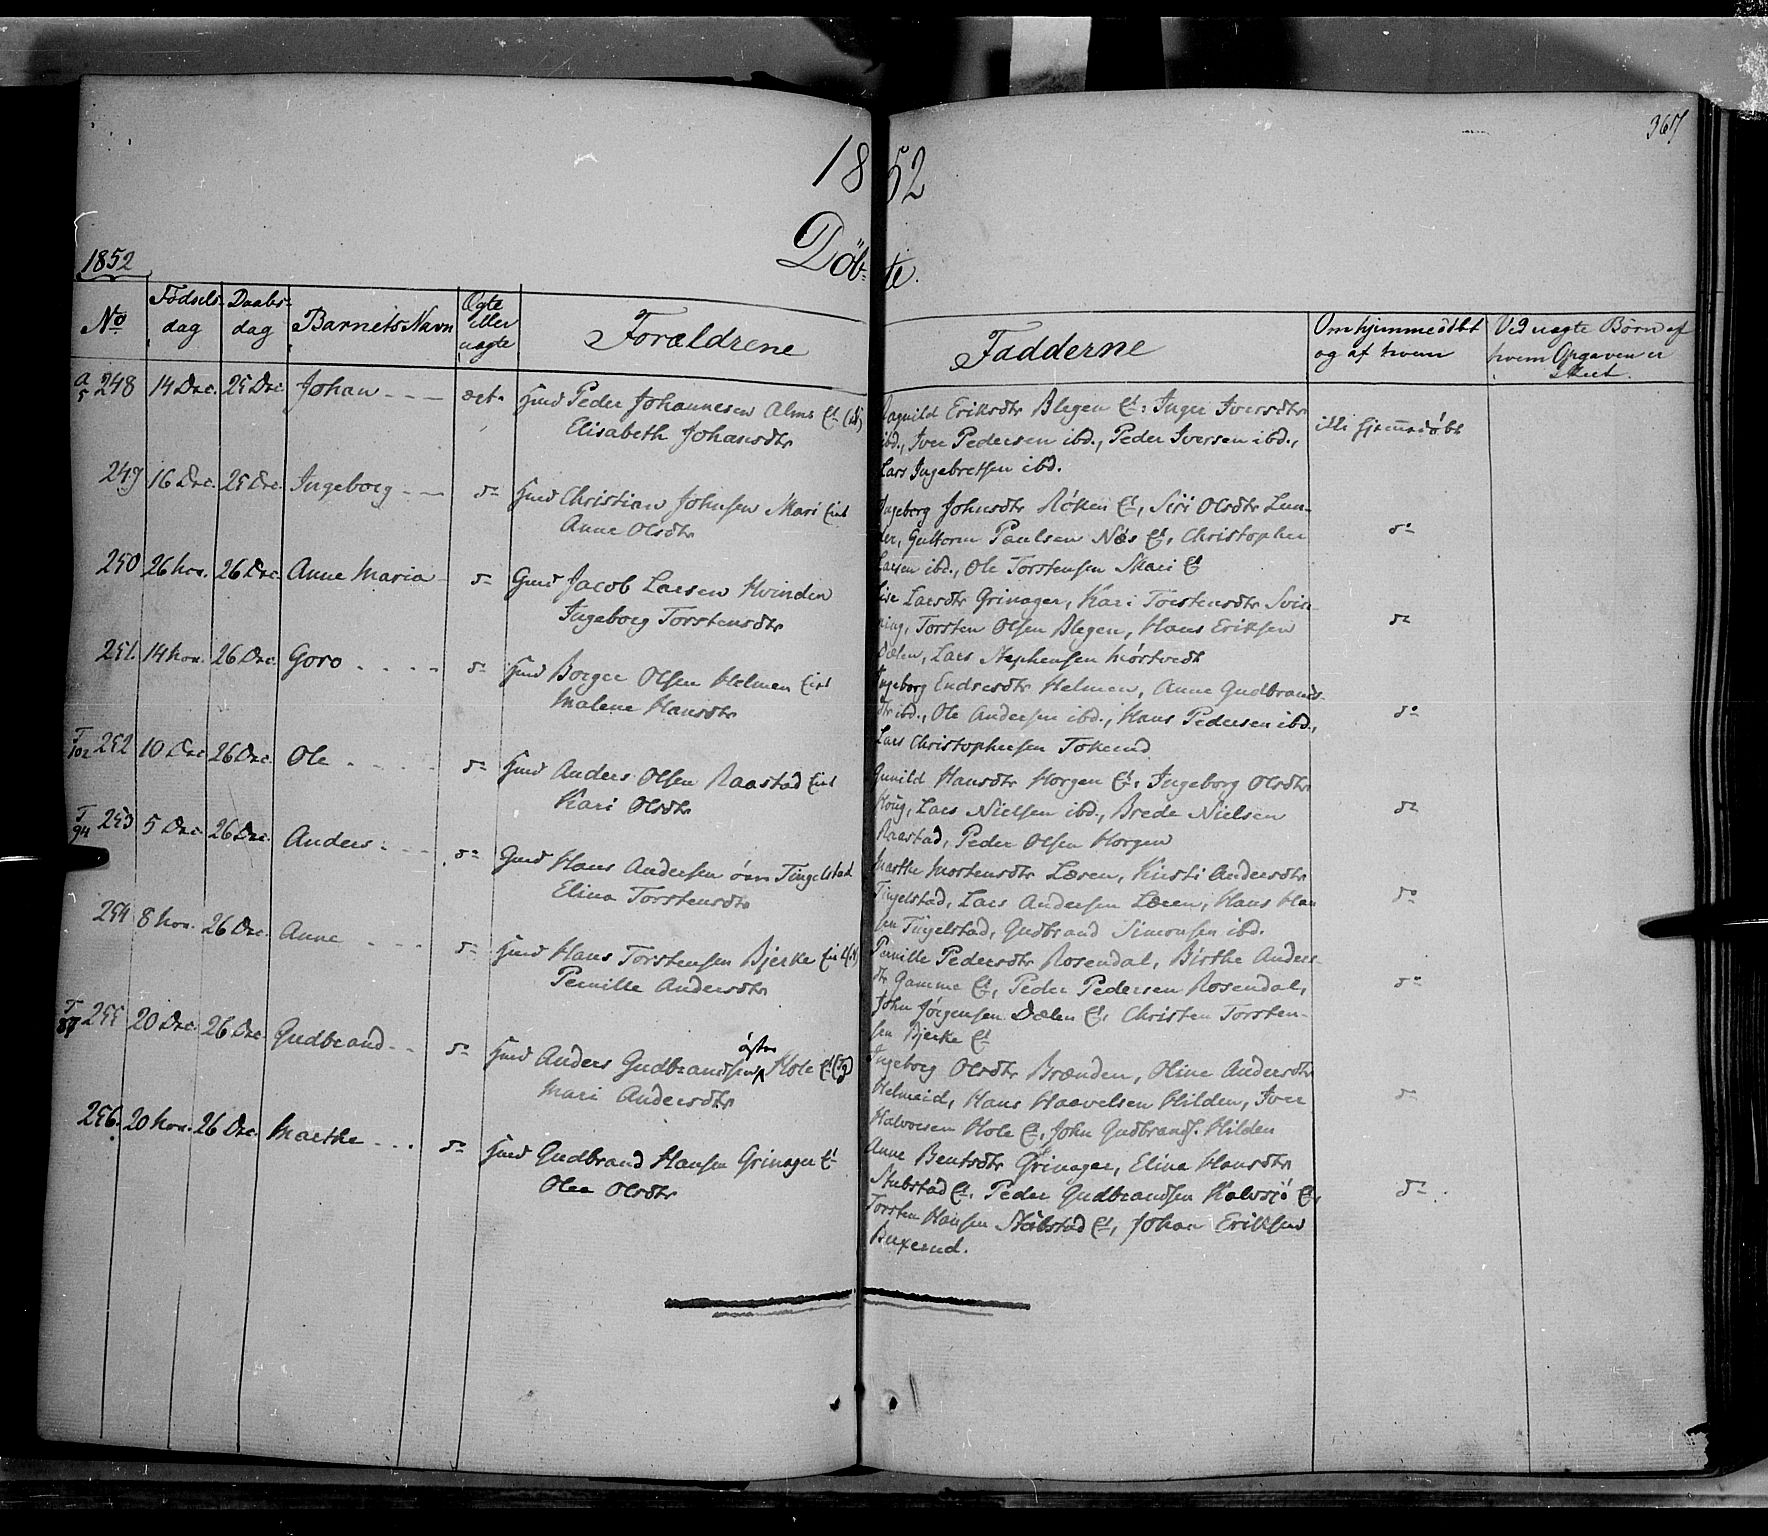 367
1852
Döbte.
1852
No
Fødsels-
dag
Daabs-
dag
Barnets Navn
Ægte
eller
uægte
Forældrene
Fadderne
Om hjemmedöbt
og af hvem
Ved uægte Børn af
hvem Opgaven er
skeet.
248 14 Dec. 25 Dec. Johan - - - ægt. Huusmd Peder Johannesen Alm
Elisabeth Johansdtr
Ragnild Eriksdtr Blegen Inger Iversdtr
ibd., Iver Pedersen ibd., Peder Iversen ibd.,
Lars Ingebretsen ibd.
ikke hjemmedöbt
249 16 Dec. 25 Dec. Ingeborg - - do Huusmd Christian Johnsen Mari Eiet
Anne Olsdtr
Ingeborg Johnsdtr Røken Et, Siri Olsdtr Lun-
der, Guttorm Paulsen Næs Et, Christopher
Larsen ibd., Ole Torstensen Mari Et
do
250 26 Nov. 26 Dec. Anne Maria - do Gmd Jacob Larsen Hvinden
Ingeborg Torstensdtr
Lise Larsdtr Grinager, Kari Torstensdtr Svin-
ning, Torsten Olsen Blegen, Hans Eriksen
Dælen, Lars Stephensen Mørtvedt
do
251. 14 Nov. 26 Dec. Goro - - - - do Huusmd Borger Olsen Helmen Eiet
Malene Hansdtr
Ingeborg Endresdtr Helmen, Anne Gudbrands-
dtr ibd., Ole Andersen ibd., Hans Pedersen ibd.,
Lars Christophersen Tokerud
do
T
102 252 10 Dec 26 Dec. Ole - - - - do Huusmd Anders Olsen Raastad Eiet
Kari Olsdtr
Gunild Hansdtr Horgen Et, Ingeborg Olsdtr
Houg, Lars Nielsen ibd., Brede Nielsen
Raastad, Peder Olsen Horgen
do
T
94 253 5 Dec 26 Dec. Anders - - - do Gmd Hans Andersen övre Tingelstad
Elina Torstensdtr
Marthe Mortensdtr Læren, Kirsti Andersdtr
Tingelstad, Lars Andersen Læren, Hans Han
sen Tingelstad, Gudbrand Simonsen ibd.
do
254 8 Nov. 26 Dec. Anne - - - do Huusmd Hans Torstensen Bjerke
Pernille Andersdtr
Pernille Pedersdtr Rosendal, Birthe Anders-
dtr Gamme Et, Peder Pedersen Rosendal,
John Jörgensen Dælen Et, Christen Torsten-
sen Bjerke Et
do
T
87 255 20 Dec. 26 Dec. Gudbrand - - do Huusmd Anders Gudbrandsen östre Hole
Mari Andersdtr
Ingeborg Olsdtr Brænden, Oline Andersdtr
Helmeid, Hans Haavelsen Hilden, Iver
Halvorsen Hole Et, John Gudbrands. Hilden
do
256. 20 Nov. 26 Dec. Marthe - - - do Huusmd Gudbrand Hansen Grinager Et
Olea Olsdtr
Anne Berntsdtr Grinager, Elina Hansdtr
Stubstad Et, Peder Gudbrandsen Kalvsjö Et,
Torsten Hansen Stubstad Et, Johan Eriksen
Buxerud.
do